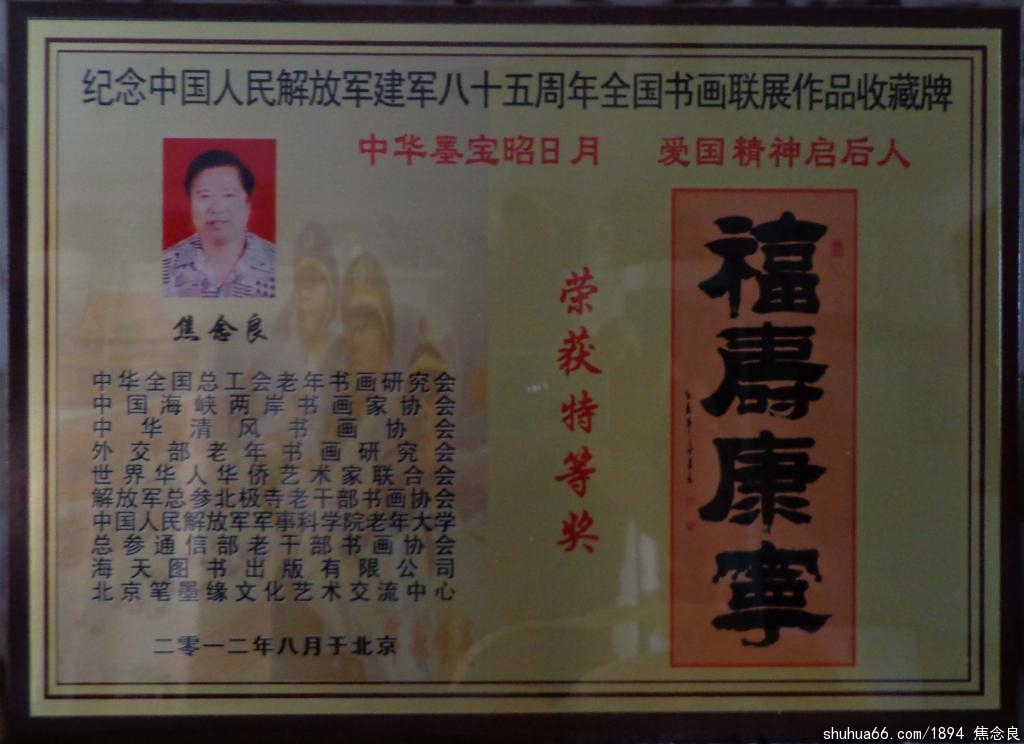 纪念中国人民解放军建军八十五周年全国书画联展作品收藏牌
中华墨宝昭日月 爱国精神启后人
焦念良
中华全国总工会老年书画研究会
中国海峡两岸书画家协会
中华清风书画协会
外交部老年书画研究会
世界华人华侨艺术家联合会
解放军总参北极寺老干部书画协会
中国人民解放军军事科学院老年大学
总参通信部老干部书画协会
海天图书出版有限公司
北京笔墨缘文化艺术交流中心
二零一二年八月于北京
荣获特等奖
福寿康宁
shuhua66.com/1894 焦念良